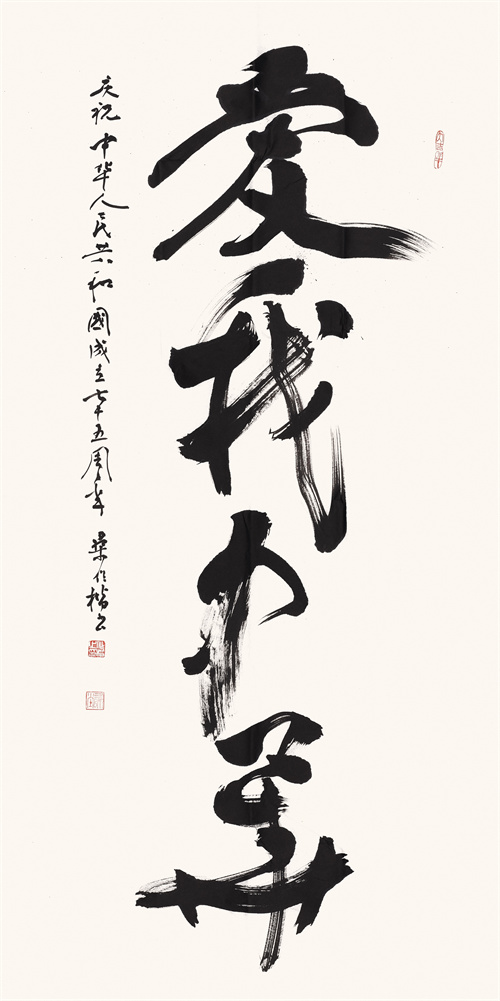 爱我中华
庆祝中华人民共和國成立七十五周年 桑作楷书